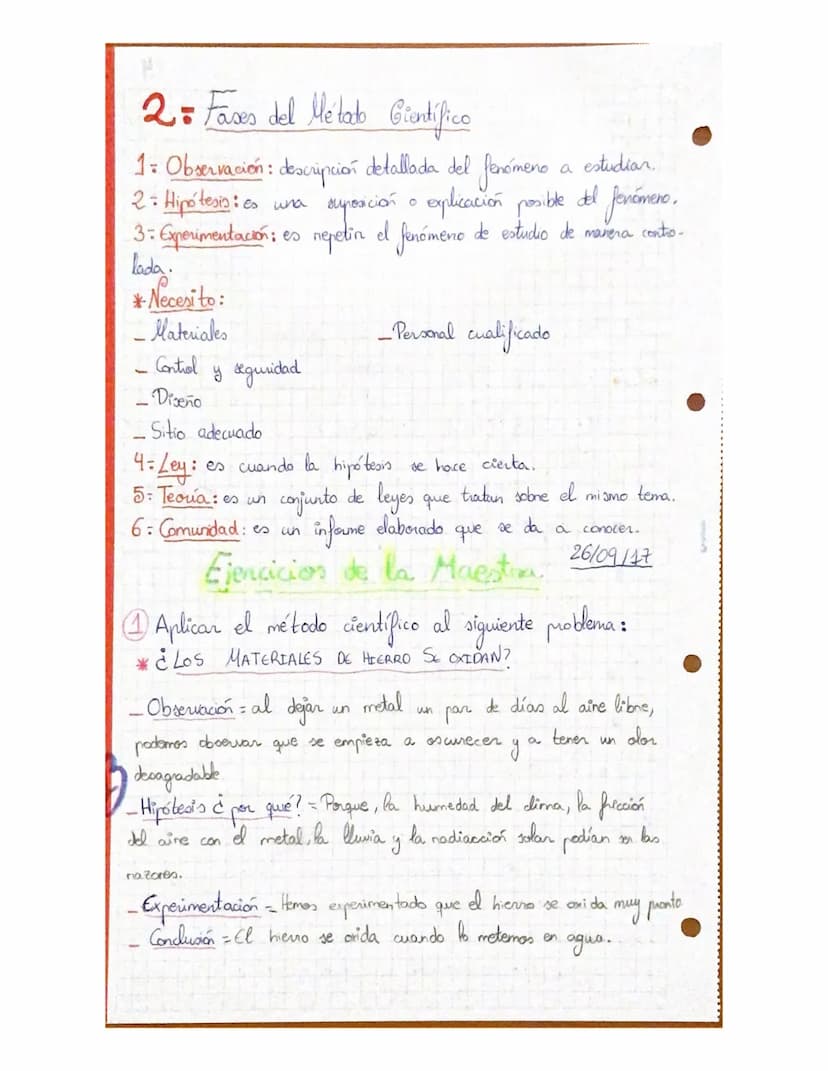 2= Fases del Método Científico
1= Observación: descripción detallada del fenómeno a estudiar.
2= Hipótesis: es una suposición o explicación posible del fenómeno.
3= Experimentación: es repetir el fenómeno de estudio de manera contro-
lada.
* Necesito:
- Materiales
- Personal cualificado
- Control y seguridad
- Diseño
- Sitio adecuado
4= Ley: es cuando la hipótesis se hace cierta.
5= Teoría: es un conjunto de leyes que tratan sobre el mismo tema.
6= Comunidad: es un informe elaborado que se da a conocer.
26/09/17
Ejercicios de la Maestra
1 Aplicar el método científico al siguiente problema:
* ¿LOS MATERIALES DE HIERRO SE OXIDAN?
- Observación = al dejar un metal un par de días al aire libre,
podemos observar que se empieza a oscurecer y a tener un olor
desagradable
- Hipótesis ¿por qué? = Porque, la humedad del clima, la fricción
del aire con el metal, la lluvia y la radiacción solar podían ser las
razores.
- Experimentación = Hemos experimentado que el hierro se oxida muy pronto
- Conclusión = El hierro se oxida cuando lo metemos en agua..